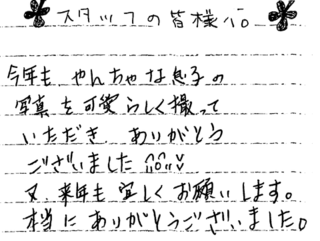 スタッフの皆様へ。
今年も やんちゃな息子の
写真を可愛らしく撮って
いただき ありがとう
ございました
又、来年も宜しくお願いします。
本当にありがとうございました。